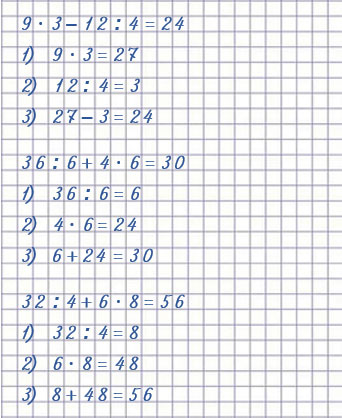 9 · 3 – 12 : 4 = 24
1) 9 · 3 = 27
2) 12 : 4 = 3
3) 27 – 3 = 24
36 : 6 + 4 · 6 = 30
1) 36 : 6 = 6
2) 4 · 6 = 24
3) 6 + 24 = 30
32 : 4 + 6 · 8 = 56
1) 32 : 4 = 8
2) 6 · 8 = 48
3) 8 + 48 = 56